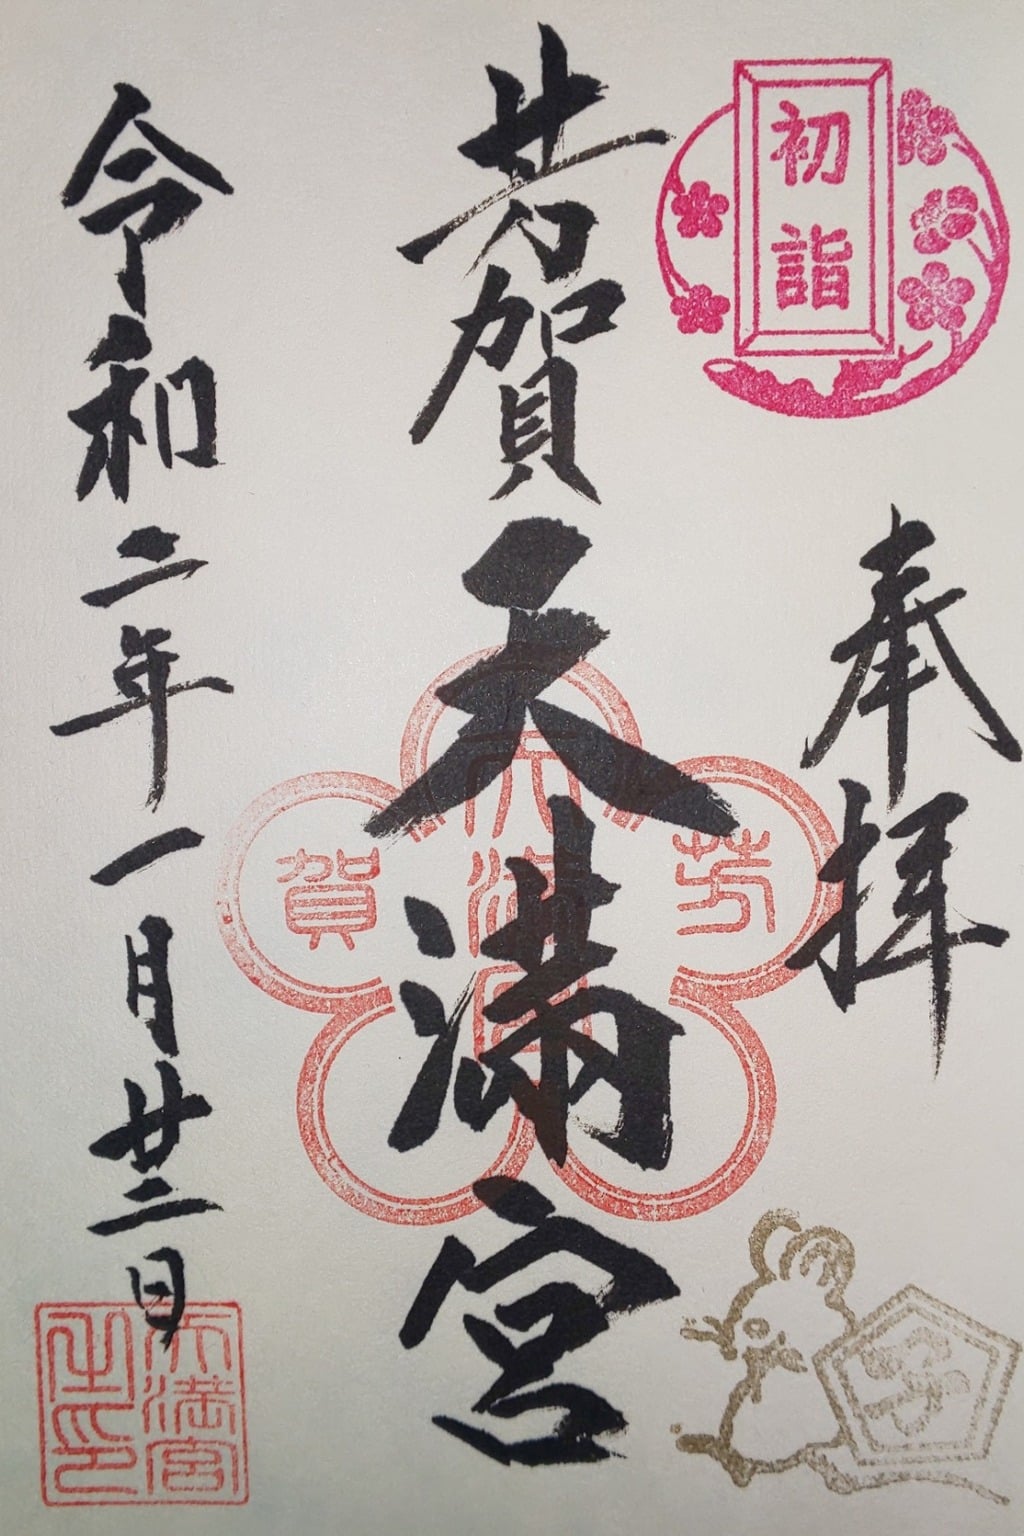 初詣
奉拝
芳賀天満宮
芳
天満宮
賀
令和二年一月廿二日
天満宮
之印
子